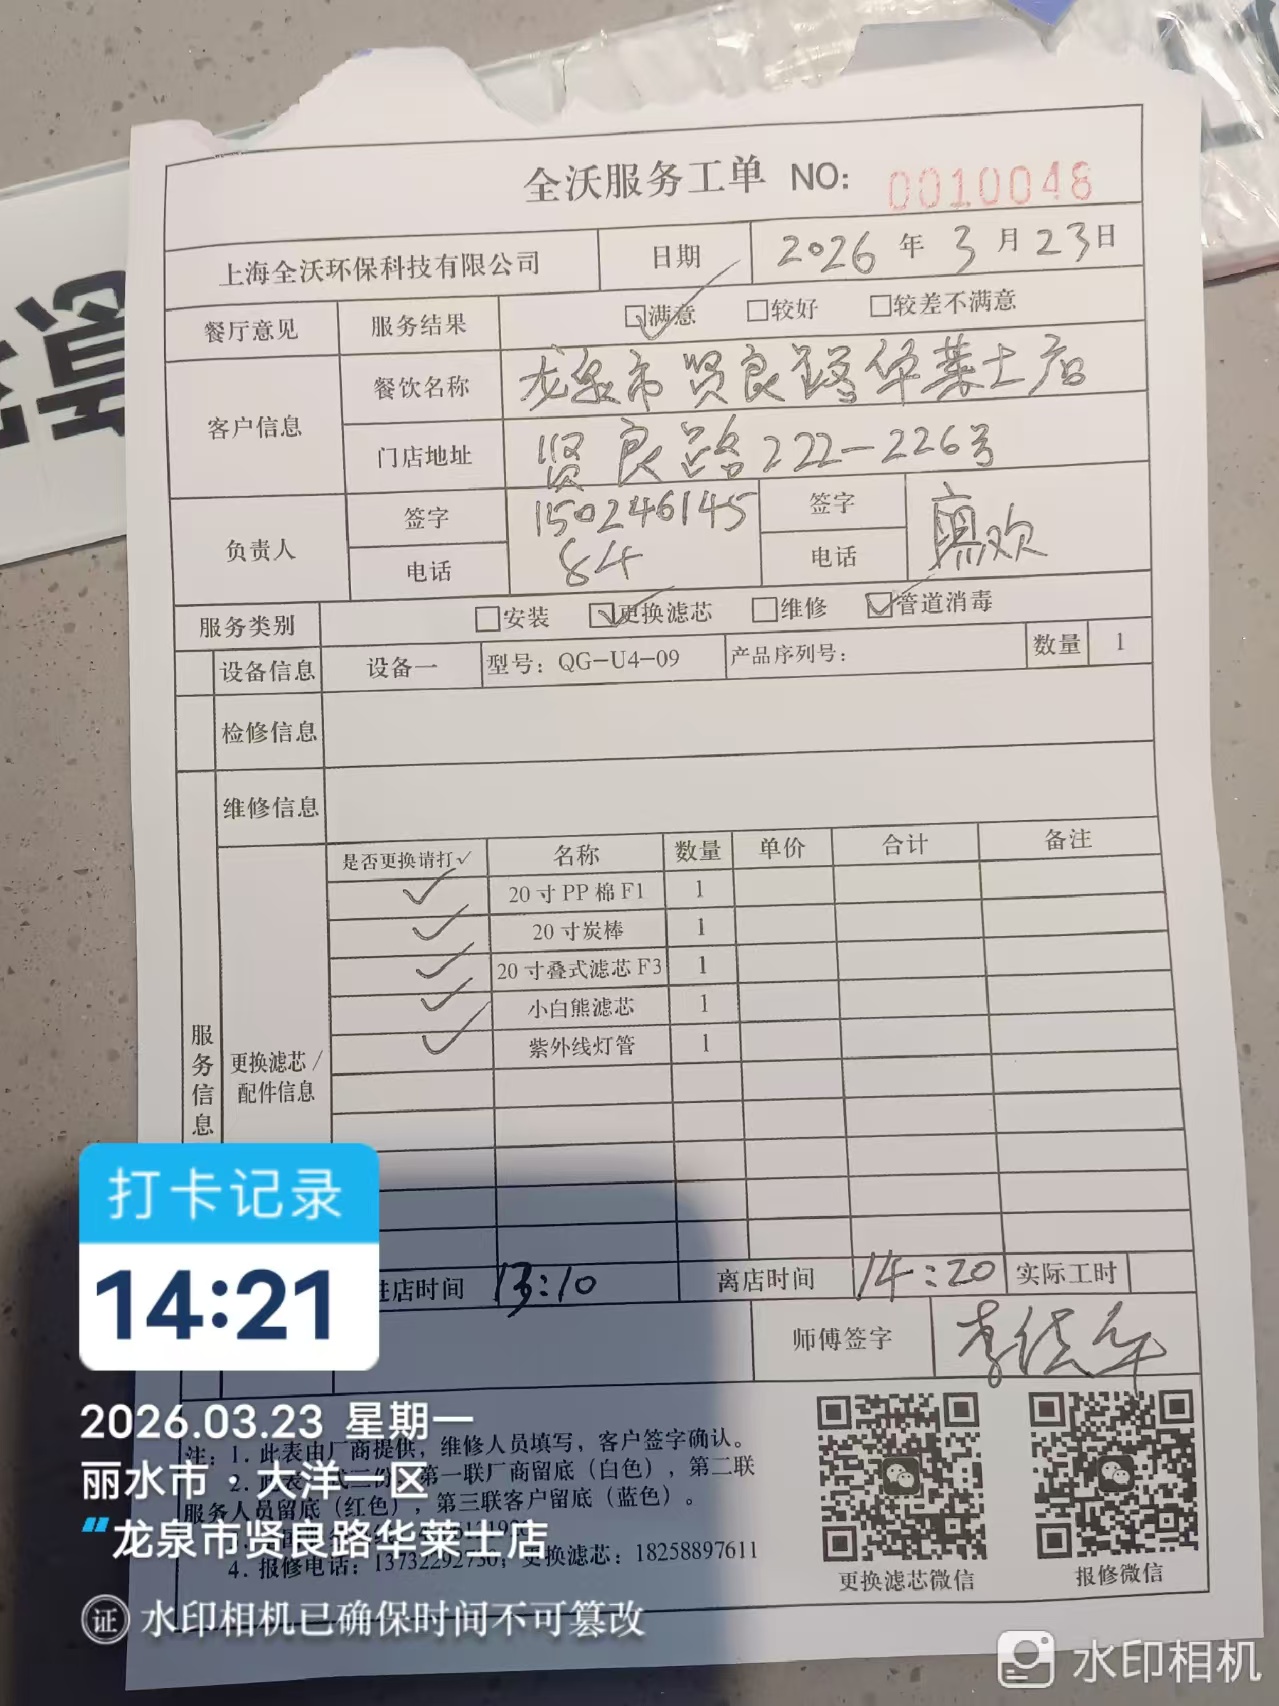 全沃服务工单 NO: 0010048
上海全沃环保科技有限公司 日期 2026年3月23日
餐厅意见 服务结果 ☑满意 □较好 □较差不满意
客户信息 餐饮名称 龙泉市贤良路华莱士店
门店地址 贤良路222-226号
负责人 签字 15024614584 签字
电话 电话
服务类别 □安装 ☑更换滤芯 □维修 ☑管道消毒
设备信息 设备一 型号：QG-U4-09 产品序列号： 数量 1
检修信息
维修信息
服务信息 更换滤芯/配件信息
是否更换请打✓ 名称 数量 单价 合计 备注
✓ 20寸PP棉F1 1
✓ 20寸炭棒 1
✓ 20寸叠式滤芯F3 1
✓ 小白熊滤芯 1
✓ 紫外线灯管 1
进店时间 13:10 离店时间 14:20 实际工时
师傅签字
注：1. 此表由厂商提供，维修人员填写，客户签字确认。
2. 第一联厂商留底（白色），第二联
服务人员留底（红色），第三联客户留底（蓝色）。
4. 报修电话：13732292730，更换滤芯：18258897611
更换滤芯微信 报修微信
打卡记录
14:21
2026.03.23 星期一
丽水市 · 大洋一区
龙泉市贤良路华莱士店
证 水印相机已确保时间不可篡改
水印相机